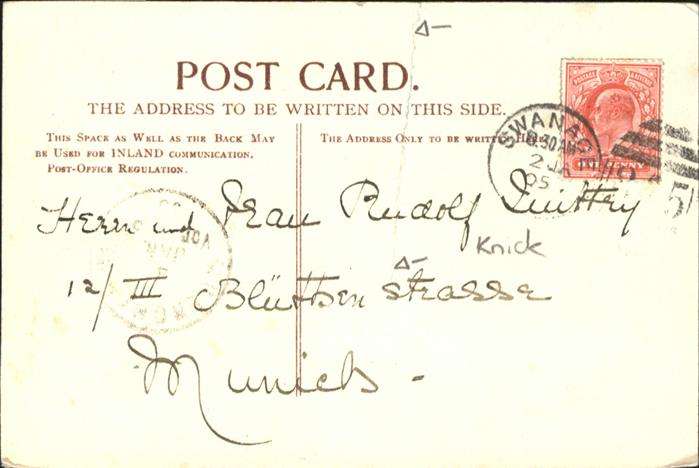 POST CARD.
THE ADDRESS TO BE WRITTEN ON THIS SIDE.
THIS SPACE AS WELL AS THE BACK MAY
BE USED FOR INLAND COMMUNICATION.
POST-OFFICE REGULATION.
THE ADDRESS ONLY TO BE WRITTEN HERE.
SWANAGE
8.30AM
2 JA
05
ONE PENNY
Herrn und Frau Rudolf
Knick
12/III Blütthen strasse
Munich -